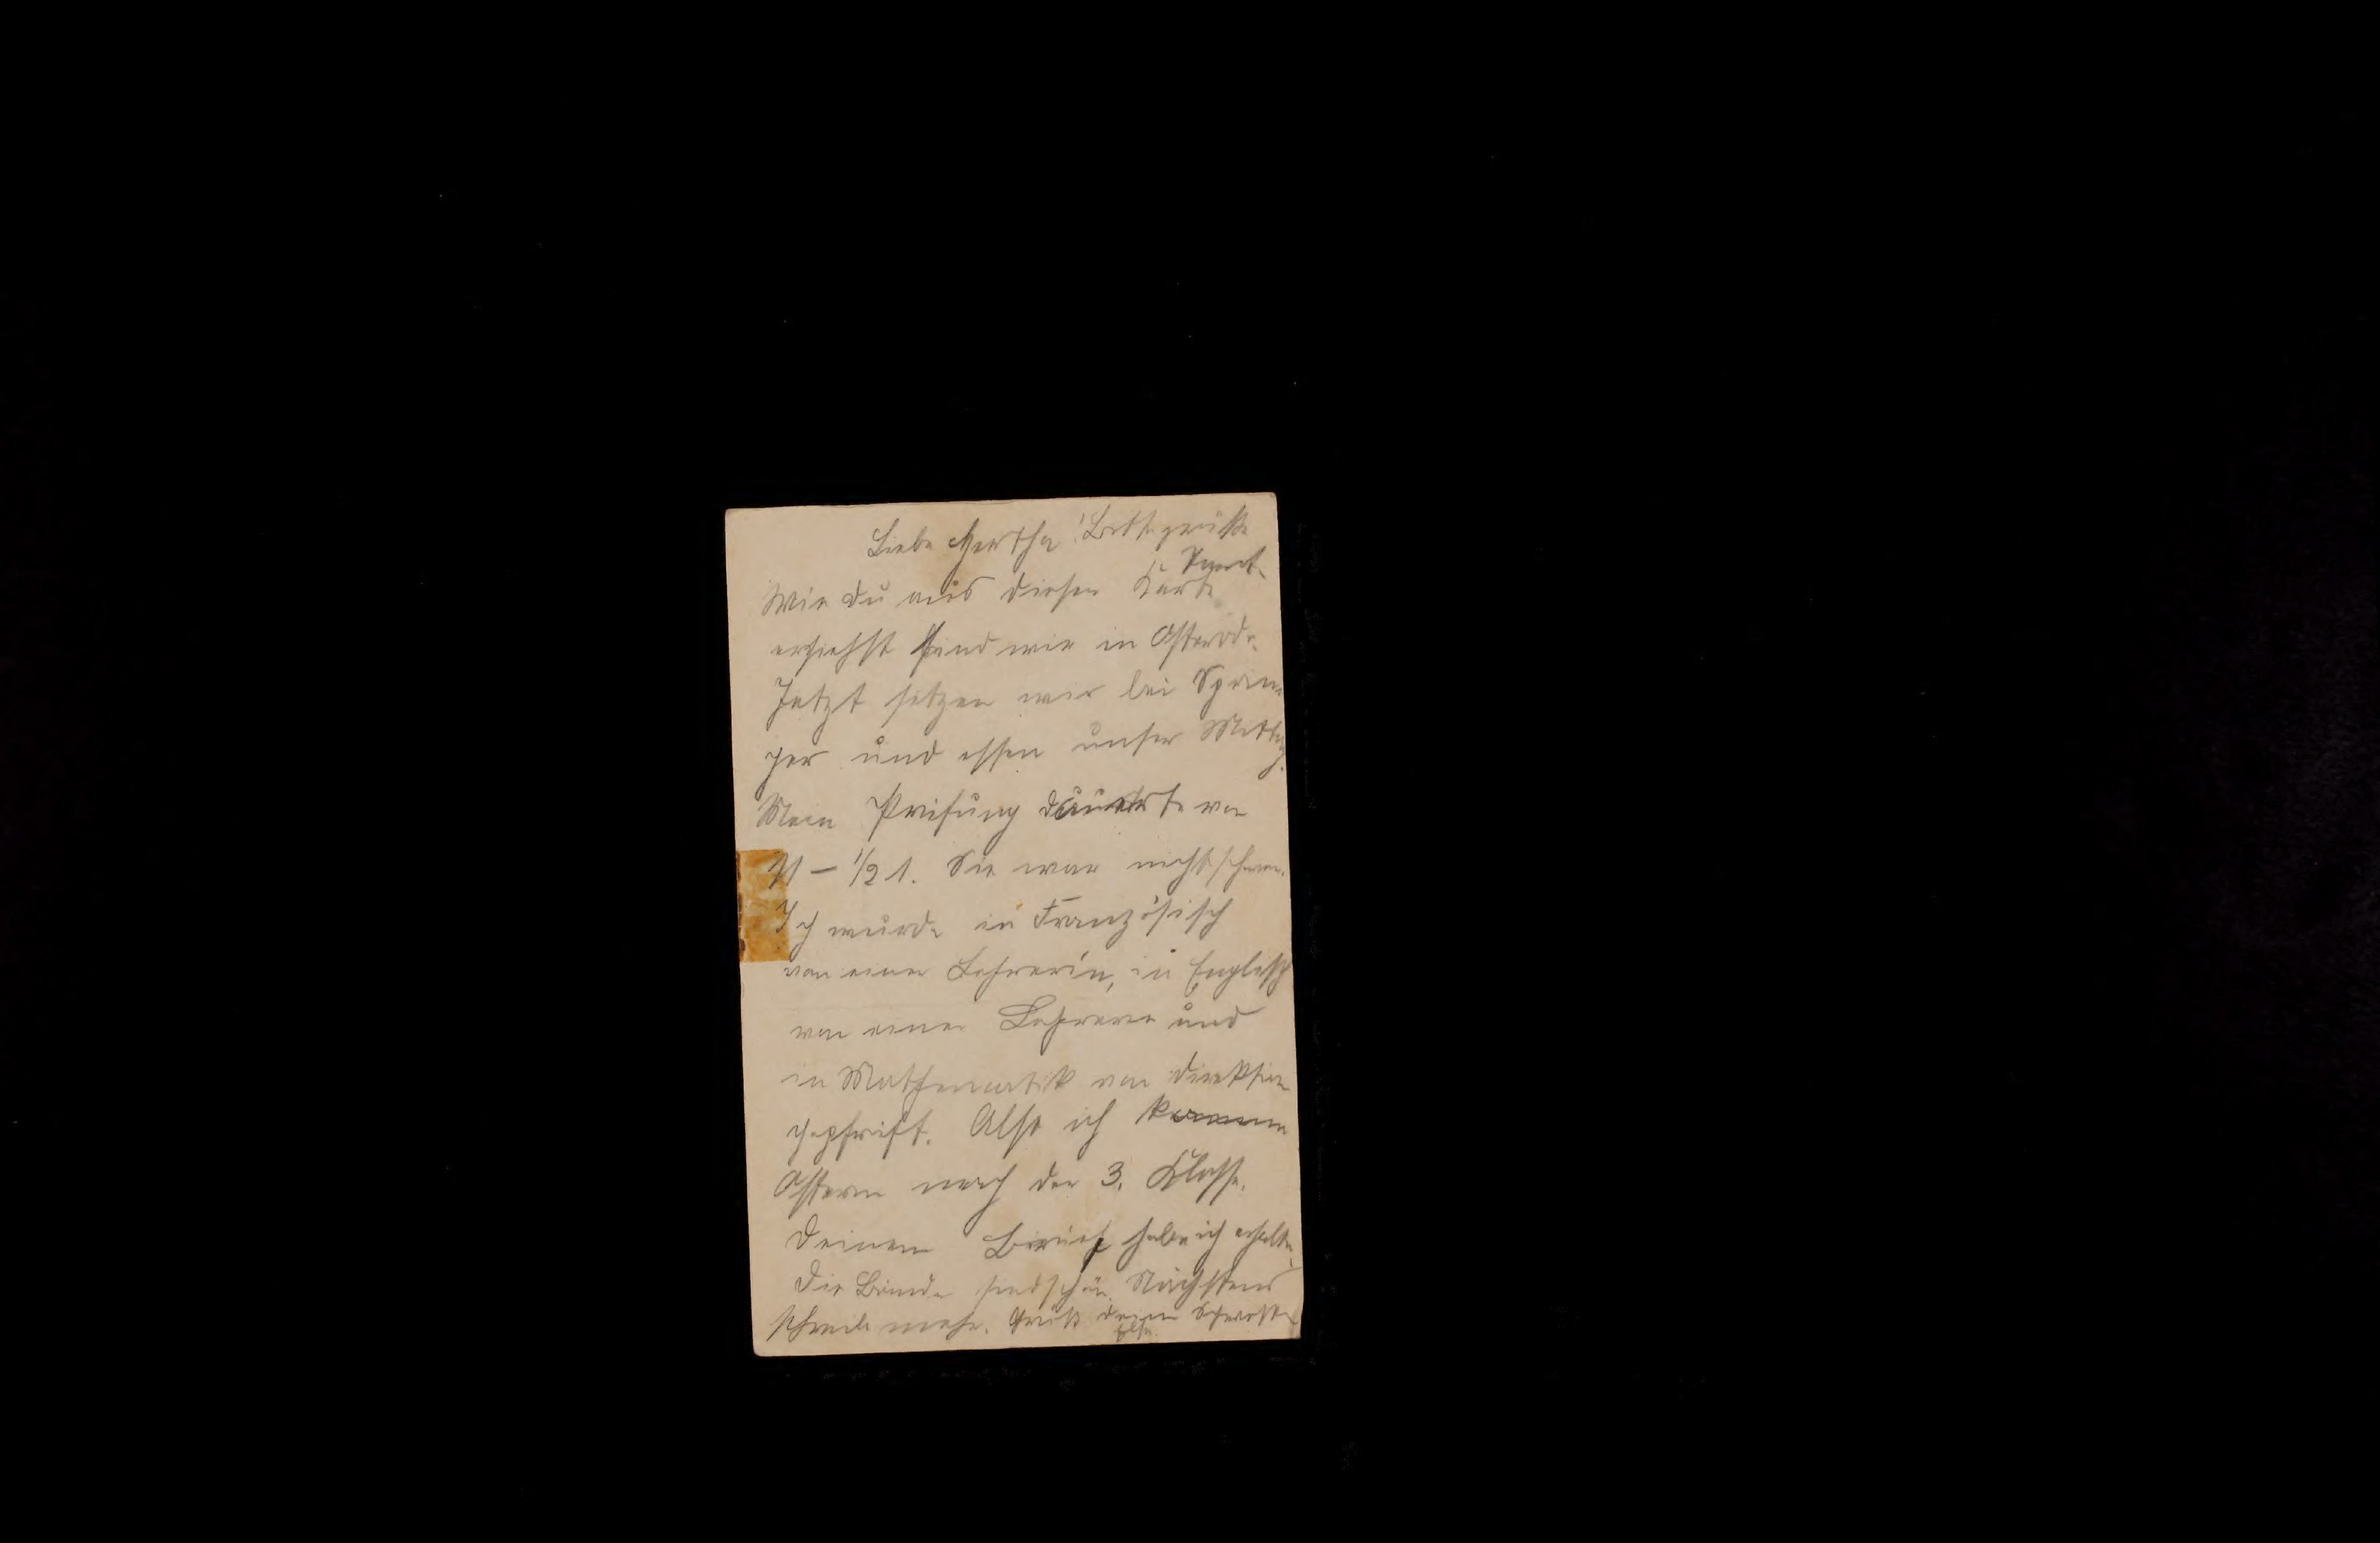 Liebe Hertha! Bitte grüße
Wie du aus dieser Karte
ersiehst sind wir in Osterode.
Jetzt sitzen wir bei Sprin
ger und essen unser Mittag.
Mein Prüfung dauerte von
11 – 1/2 1. Sie war nicht schwer.
Ich wurde in Französisch
von einer Lehrerin, in Englisch
von einer Lehrerin und
in Mathematik von Direktor
geprüft. Also ich komme
Ostern nach der 3. Klasse.
Deinen Brief habe ich erhalten.
Die Bände sind schön. Nächstens
schreibe mehr. Grüß deine Schwester
Else.